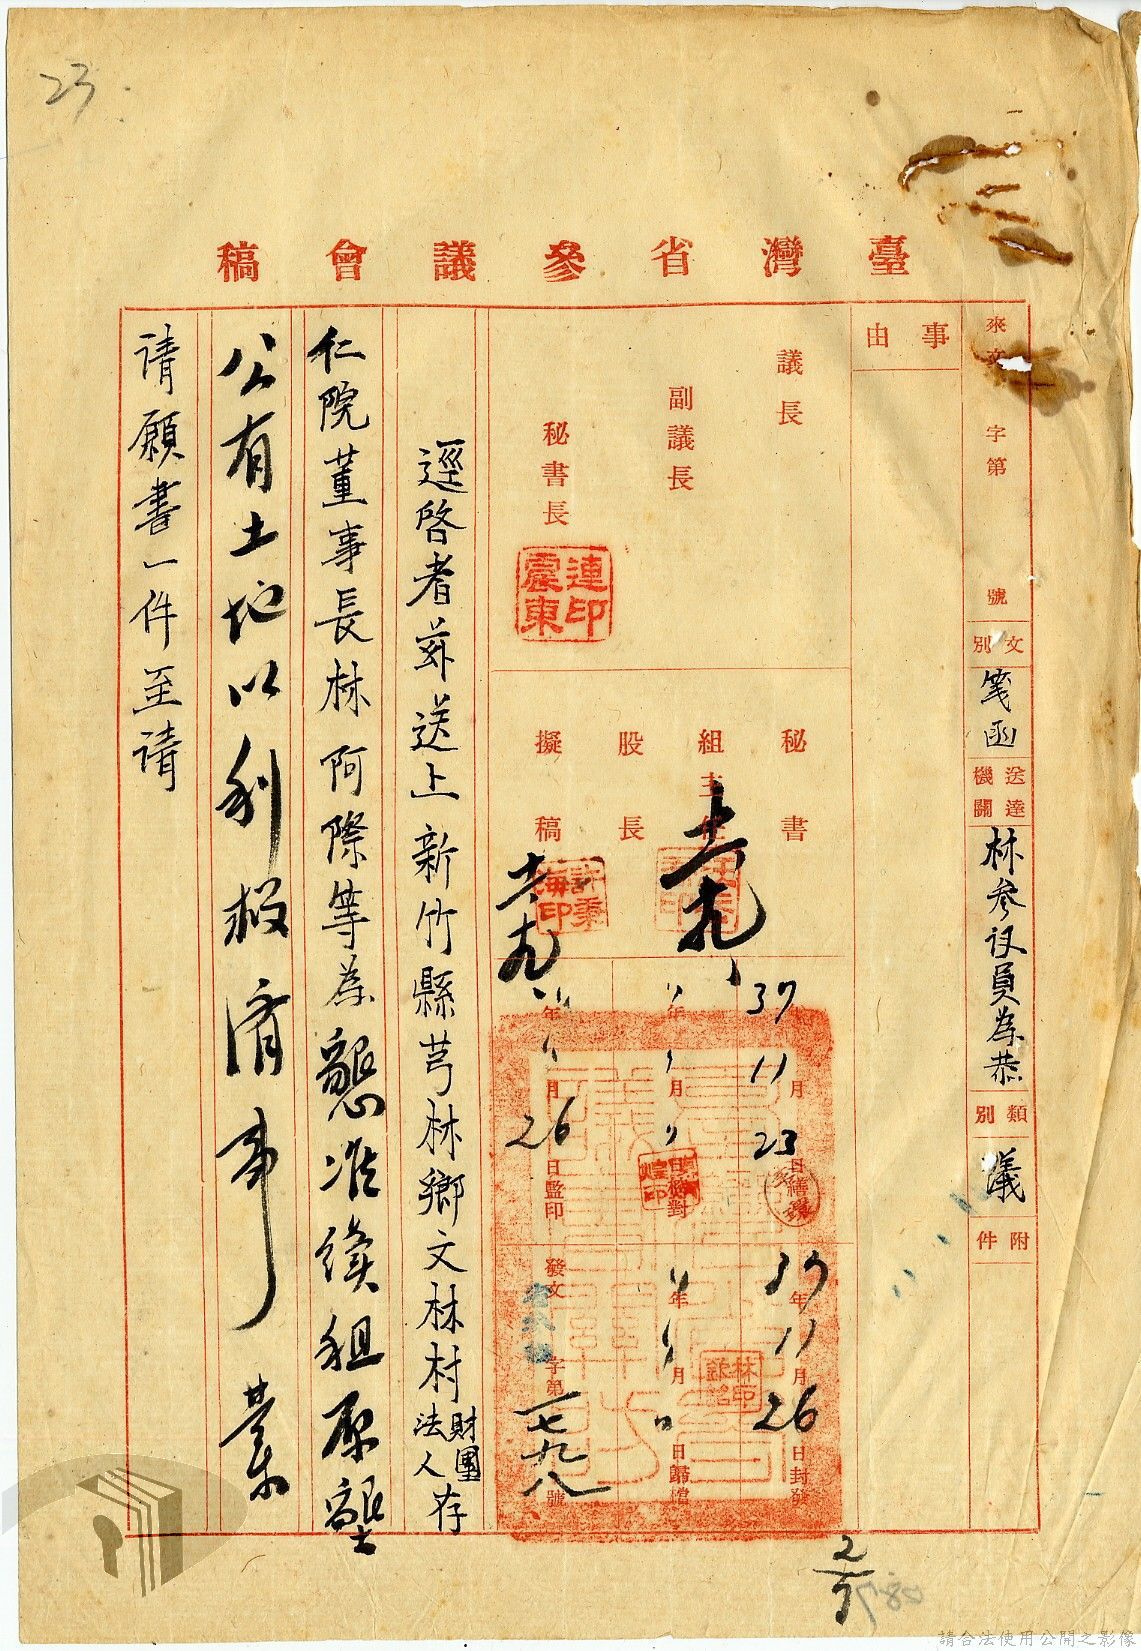 23
臺灣省參議會稿
來文 字第 號
文別 箋函
送達機關 林參議員為恭
類別 議
附件
事由
議長
副議長
秘書長
連震東印
秘書
組主任
股長
擬稿
37年11月23日繕寫
年 月 日校對
年 月26日監印
37年11月26日封發
年 月 日歸檔
發文 字第一七九八號
逕啓者茲送上新竹縣芎林鄉文林村財團法人存
仁院董事長林阿際等為懇准續租原墾
公有土地以利救濟事業
请願書一件至请
請合法使用公開之影像